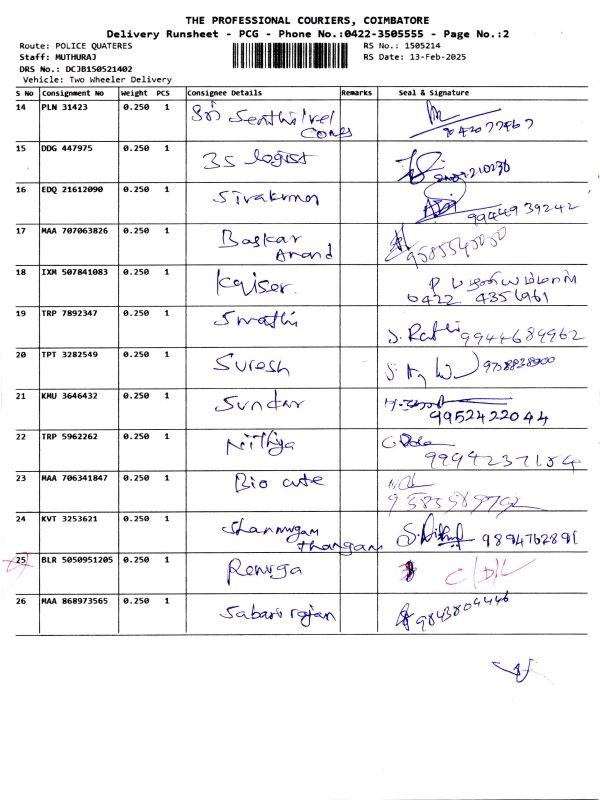 THE PROFESSIONAL COURIERS, COIMBATORE
Delivery Runsheet - PCG - Phone No.:0422-3505555 - Page No.:2
Route: POLICE QUATERES
RS No.: 1505214
Staff: MUTHURAJ
RS Date: 13-Feb-2025
DRS No.: DCJB150521402
Vehicle: Two Wheeler Delivery
S No Consignment No Weight PCS Consignee Details Remarks Seal & Signature
14 PLN 31423 0.250 1 Sri Senthilvel
15 DDG 447975 0.250 1 3S logist
16 EDQ 21612090 0.250 1 Sivakumar 9944939242
17 MAA 707063826 0.250 1 Baskar
Anand
18 IXM 507841083 0.250 1 Kaiser.
0422 4356961
19 TRP 7892347 0.250 1 Swathi 9944689962
20 TPT 3282549 0.250 1 Suresh
21 KMU 3646432 0.250 1 Sundar 9952422044
22 TRP 5962262 0.250 1 Nithya
23 MAA 706341847 0.250 1 Bio cute
24 KVT 3253621 0.250 1 Shanmugam
thangam 9894762891
25 BLR 5050951205 0.250 1 Renuga C/D/L
26 MAA 868973565 0.250 1 Sabari rajan 9843804446